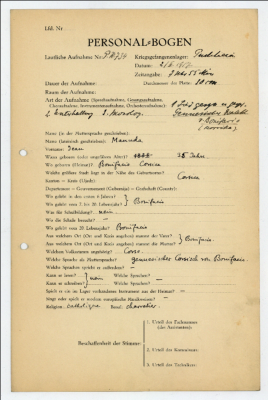 Lfd. Nr.
PERSONAL-BOGEN
Lautliche Aufnahme Nr. PK 734 Kriegsgefangenenlager:
Datum:
Zeitangabe:
Dauer der Aufnahme: Durchmesser der Platte: 30 cm
Raum der Aufnahme:
Art der Aufnahme (Sprechaufnahme, Gesangsaufnahme,
Choraufnahme, Instrumentenaufnahme, Orchesteraufnahme):
Name (in der Muttersprache geschrieben):
Name (lateinisch geschrieben):
Vorname: Jean
Wann geboren (oder ungefähres Alter)? 35 Jahre
Wo geboren (Heimat)? Bonifacio Corsica
Welche größere Stadt liegt in der Nähe des Geburtsortes?
Kanton — Kreis (Ujedz): Corsica
Departement — Gouvernement (Gubernija) — Grafschaft (County):
Wo gelebt in den ersten 6 Jahren?
Wo gelebt vom 7. bis 20. Lebensjahr? Bonifacio
Was für Schulbildung? nein
Wo die Schule besucht? —
Wo gelebt vom 20. Lebensjahr? Bonifacio
Aus welchem Ort (Ort und Kreis angeben) stammt der Vater?
Aus welchem Ort (Ort und Kreis angeben) stammt die Mutter? Bonifacio
Welchem Volksstamm angehörig? Corse
Welche Sprache als Muttersprache? genuesisches Corsisch von Bonifacio
Welche Sprachen spricht er außerdem? —
Kann er lesen? nein Welche Sprachen? —
Kann er schreiben? nein Welche Sprachen? —
Spielt er ein im Lager vorhandenes Instrument aus der Heimat? —
Singt oder spielt er modern europäische Musikweisen? —
Religion: catholique Beruf:
Beschaffenheit der Stimme:
1. Urteil des Fachmannes
(des Assistenten):
2. Urteil des Kommissars:
3. Urteil des Technikers: